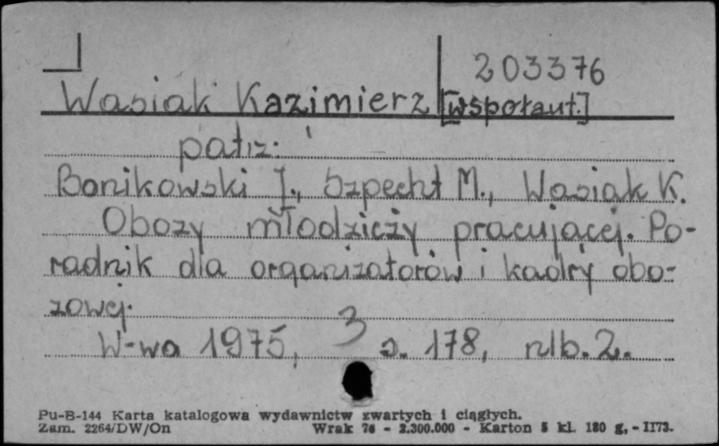 203376
Wasiak Kazimierz [współaut.]
patrz:
Bonikowski J., Szpecht M., Wasiak K.
Obozy młodzieży pracującej. Po-
radnik dla organizatorów i kadry obo-
zowej.
W-wa 1975, 3 s. 178, nlb. 2.
Pu-B-144 Karta katalogowa wydawnictw zwartych i ciągłych.
Zam. 2264/DW/On Wrak 74 - 2.300.000 - Karton 5 kl. 180 g. - II73.